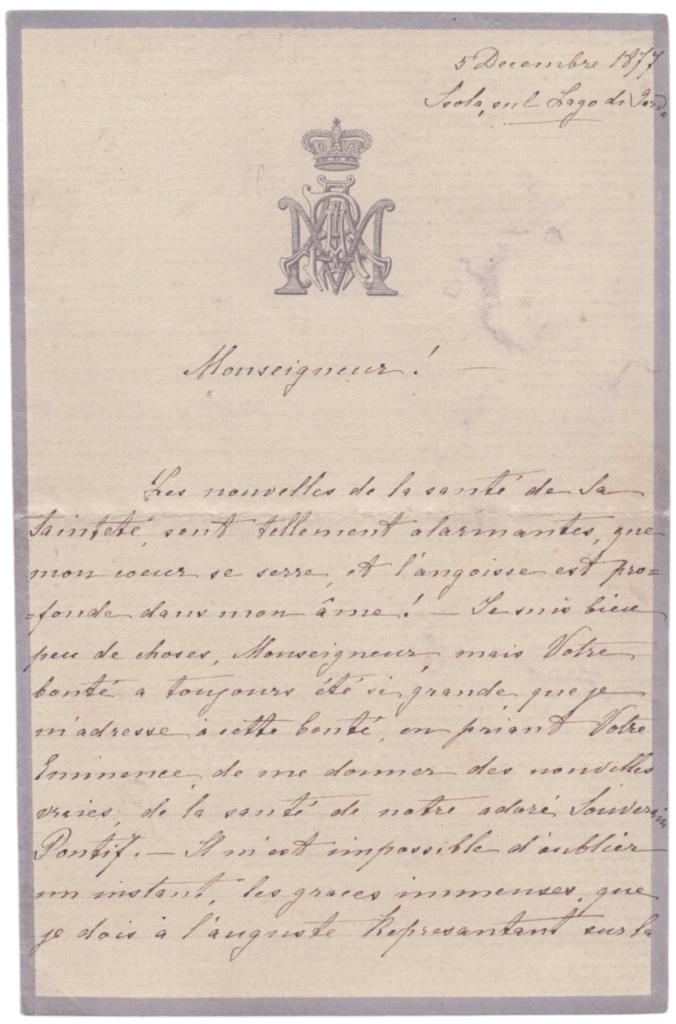 5 Decembre 1877
Isola, sul Lago di Garda
Monseigneur! —
Les nouvelles de la santé de Sa
Sainteté, sont tellement alarmantes, que
mon coeur se serre, et l'angoisse est pro=
=fonde dans mon âme! — Je suis bien
peu de choses, Monseigneur, mais Votre
bonté a toujours été si grande, que je
m'adresse à cette bonté, en priant Votre
Eminence, de me donner des nouvelles
vraies, de la santé de notre adoré Souverain
Pontif. — Il m'est impossible d'oublier
un instant, les graces immenses, que
je dois à l'auguste Représantant sur la